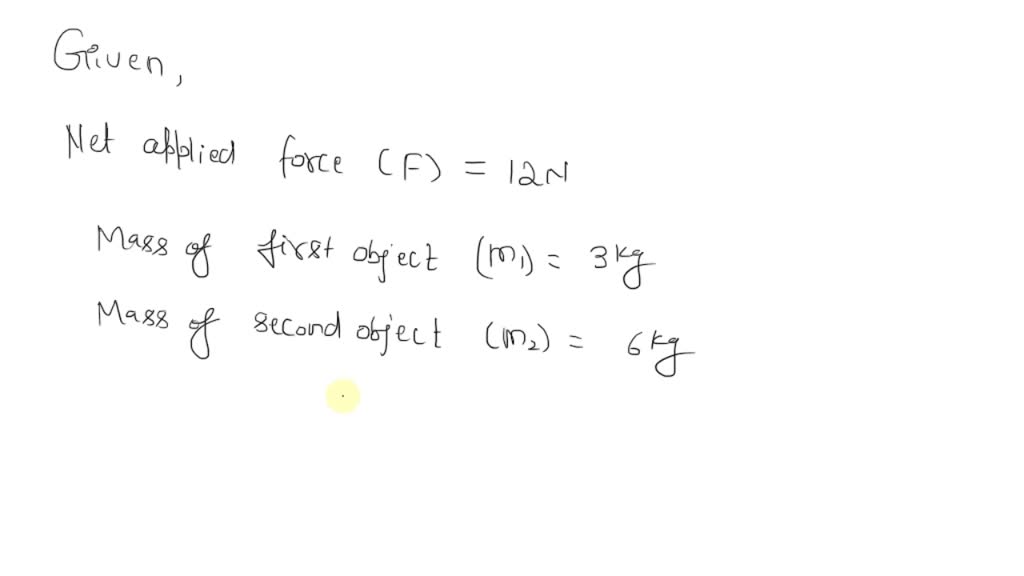 Given,
Net applied force (F) = 12N
Mass of first object (m₁) = 3kg
Mass of second object (m₂) = 6kg